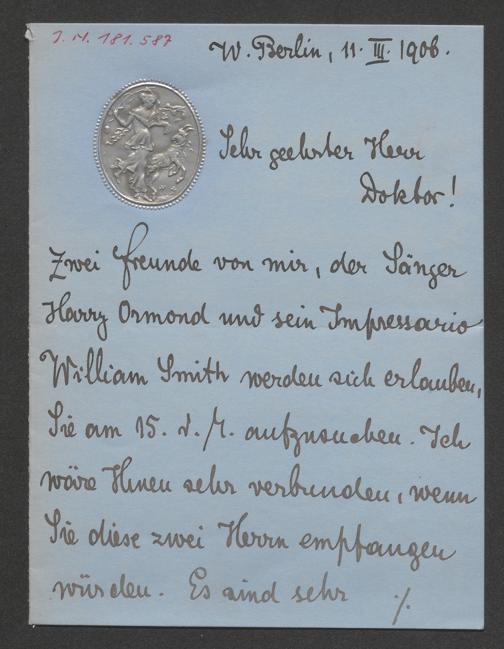 J.N. 181.587
W. Berlin, 11. III. 1906.
Sehr geehrter Herr
Doktor!
Zwei Freunde von mir, der Sänger
Harry Ormond und sein Impressario
William Smith werden sich erlauben,
Sie am 15. d. M. aufzusuchen. Ich
wäre Ihnen sehr verbunden, wenn
Sie diese zwei Herrn empfangen
würden. Es sind sehr ./.